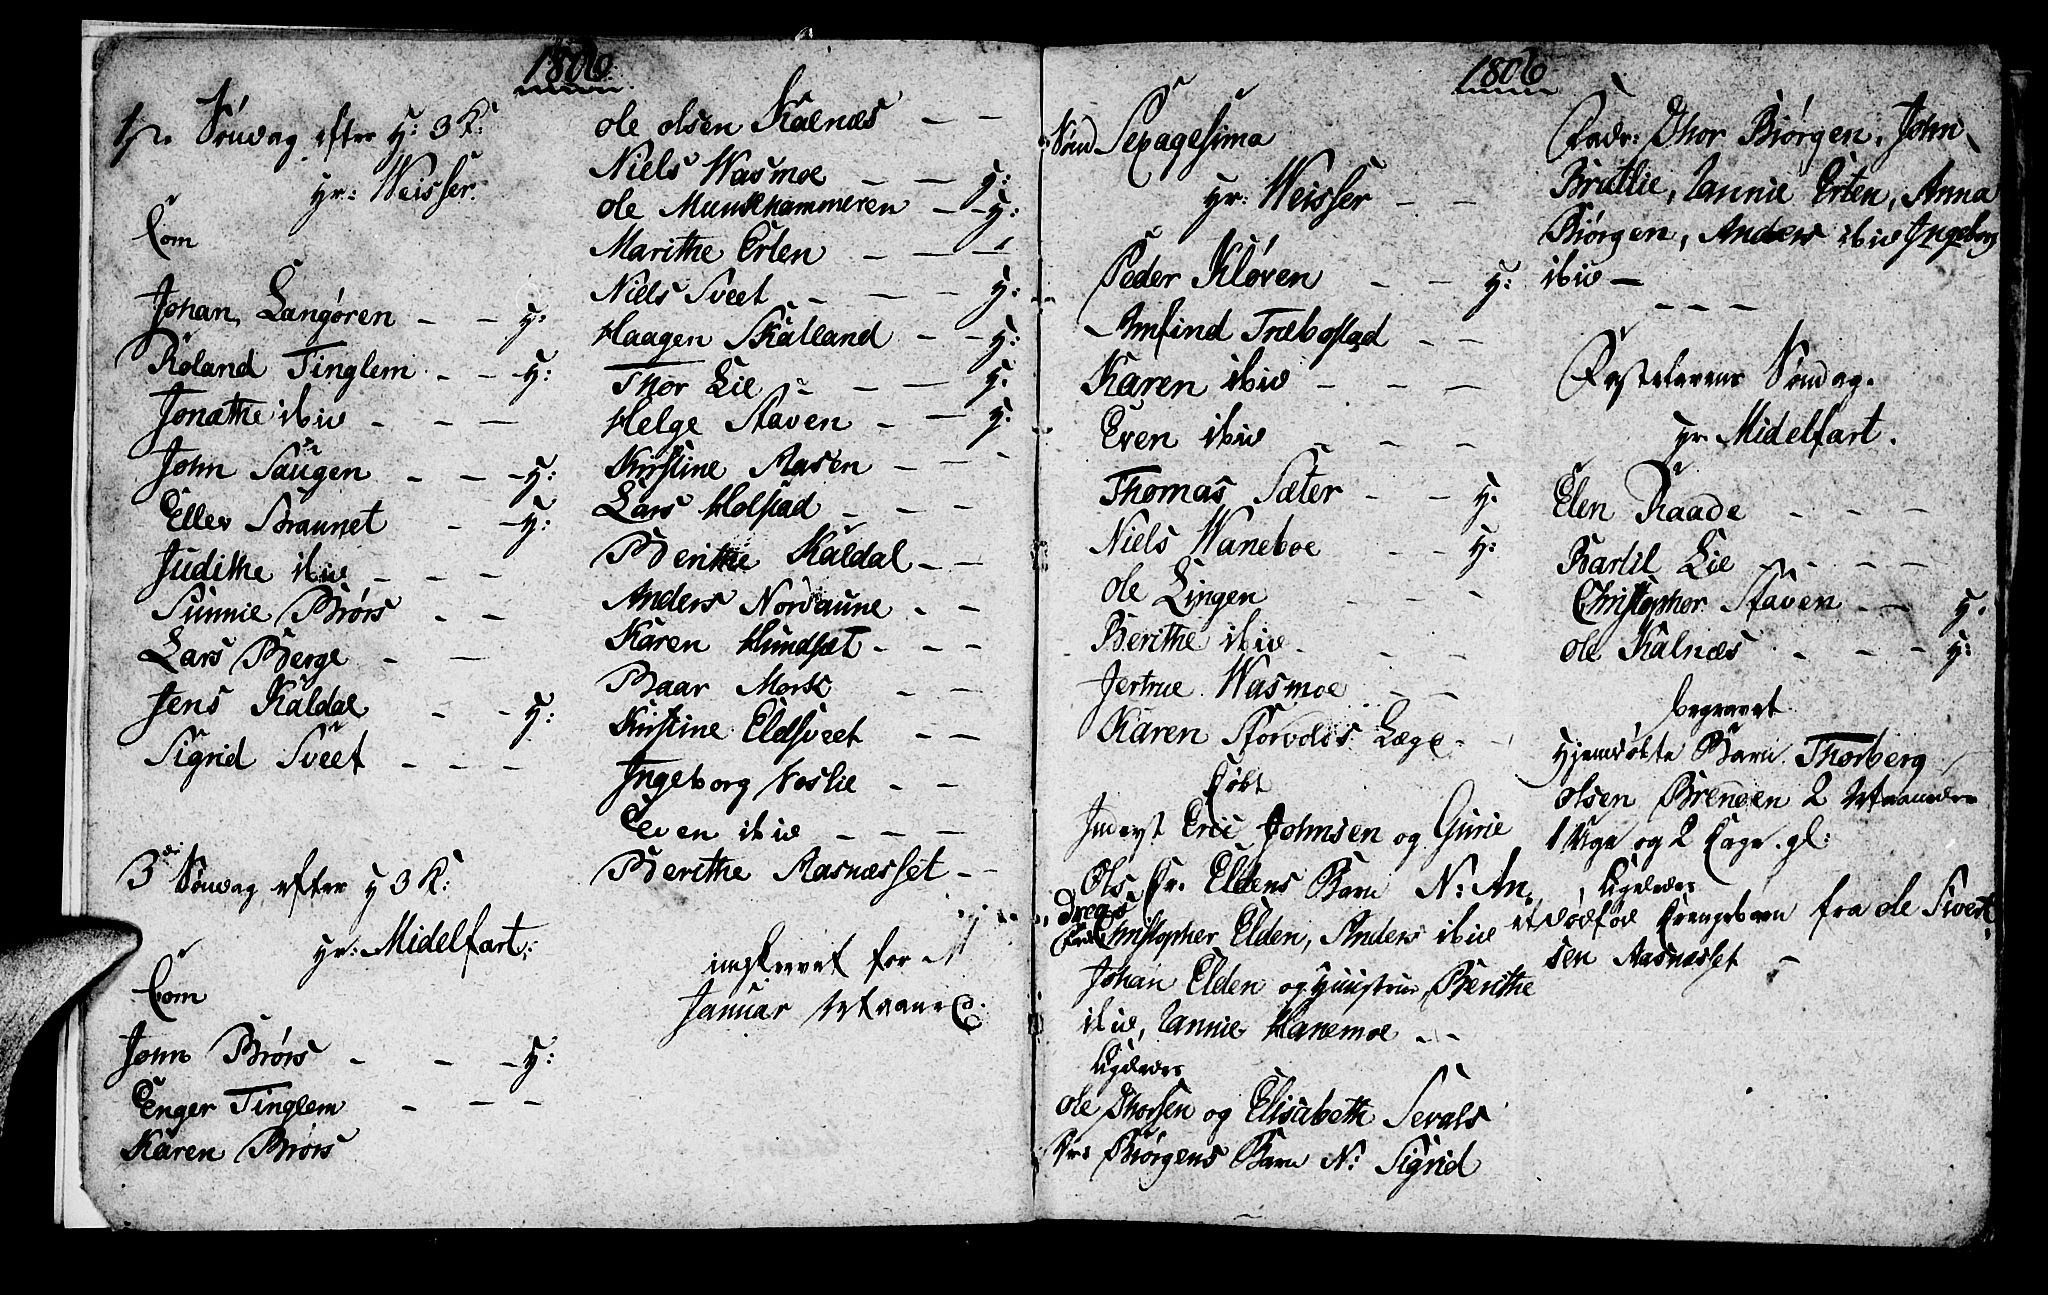 1806
1ste Søndag efter H: 3 K:
Hr: Weisser.
Com
Johan Langøren - - H:
Roland Tinglem - - H:
Jonathe ibid - - -
John Saugen - - - H:
Ellev Braunet - - H:
Judithe ibid - - -
Sunnie Brørs - -
Lars Berge - -
Jens Kaldal - - H:
Sigrid Sveet - - -
3die Søndag efter H 3 K:
Hr: Midelfart:
Com
John Brørs - - - H:
Enger Tinglem - - -
Karen Brørs
ole olsen Kalnæs - -
Niels Wasmoe - - H:
ole Munkhammeren - - H:
Marithe Erten - - -
Niels Sveet - - - H:
Haagen Skalland - - H:
Thor Lie - - - H.
Helge Staven - - H.
Kirstine Aasen - - -
Lars Holstad - - -
Berithe Kaldal - -
Anders Nordaune - -
Karen Hundsæt - - -
Baar Mork - -
Kirstine Eldsveet - -
Ingeborg Voslie - -
Even ibid - - -
Berithe Aasnæsset - -
for
Januar
1806
Sønd Sexagesima
Hr: Weisser - -
Peder Kløven - - H:
Amfind Træbostad - -
Karen ibid - - -
Even ibid - - -
Thomas Sæter - - H.
Niels Waneboe - - H:
ole Lyngen - - -
Berithe ibid - - -
Jertrue Wasmoe - -
Karen Storvols Læge - -
Døbt
Inderst Eric Johnsen og Gurie
Ols Dr. Eldens Barn N: An
dreas
Fad: Christopher Elden, Anders ibid
Johan Elden og Hunstrue, Berithe
ibid, Hanemoe - -
Ligeledes
ole Thorsen og Elisabeth Sevals
Dr: Biørgens Barn N: Sigrid
Fadr: Thor Biørgen, John
Bratlie, Erten, Anna
Biørgen, Anders ibid Ingeborg
ibid -
- - -
Fastelavens Søndag.
Hr. Midelfart.
Elen Raade - - -
Bartil Lie - - -
Christopher Staven - - H.
ole Kalnæs - - - H:
begravet
Hjemdøbte Barn Thorberg
olsen Brenden 2 Maaneder
1 Uge og 2 Dage gl:
Ligeledes
et dødfød Drengebarn fra ole Sivert
sen Aasnæsset -